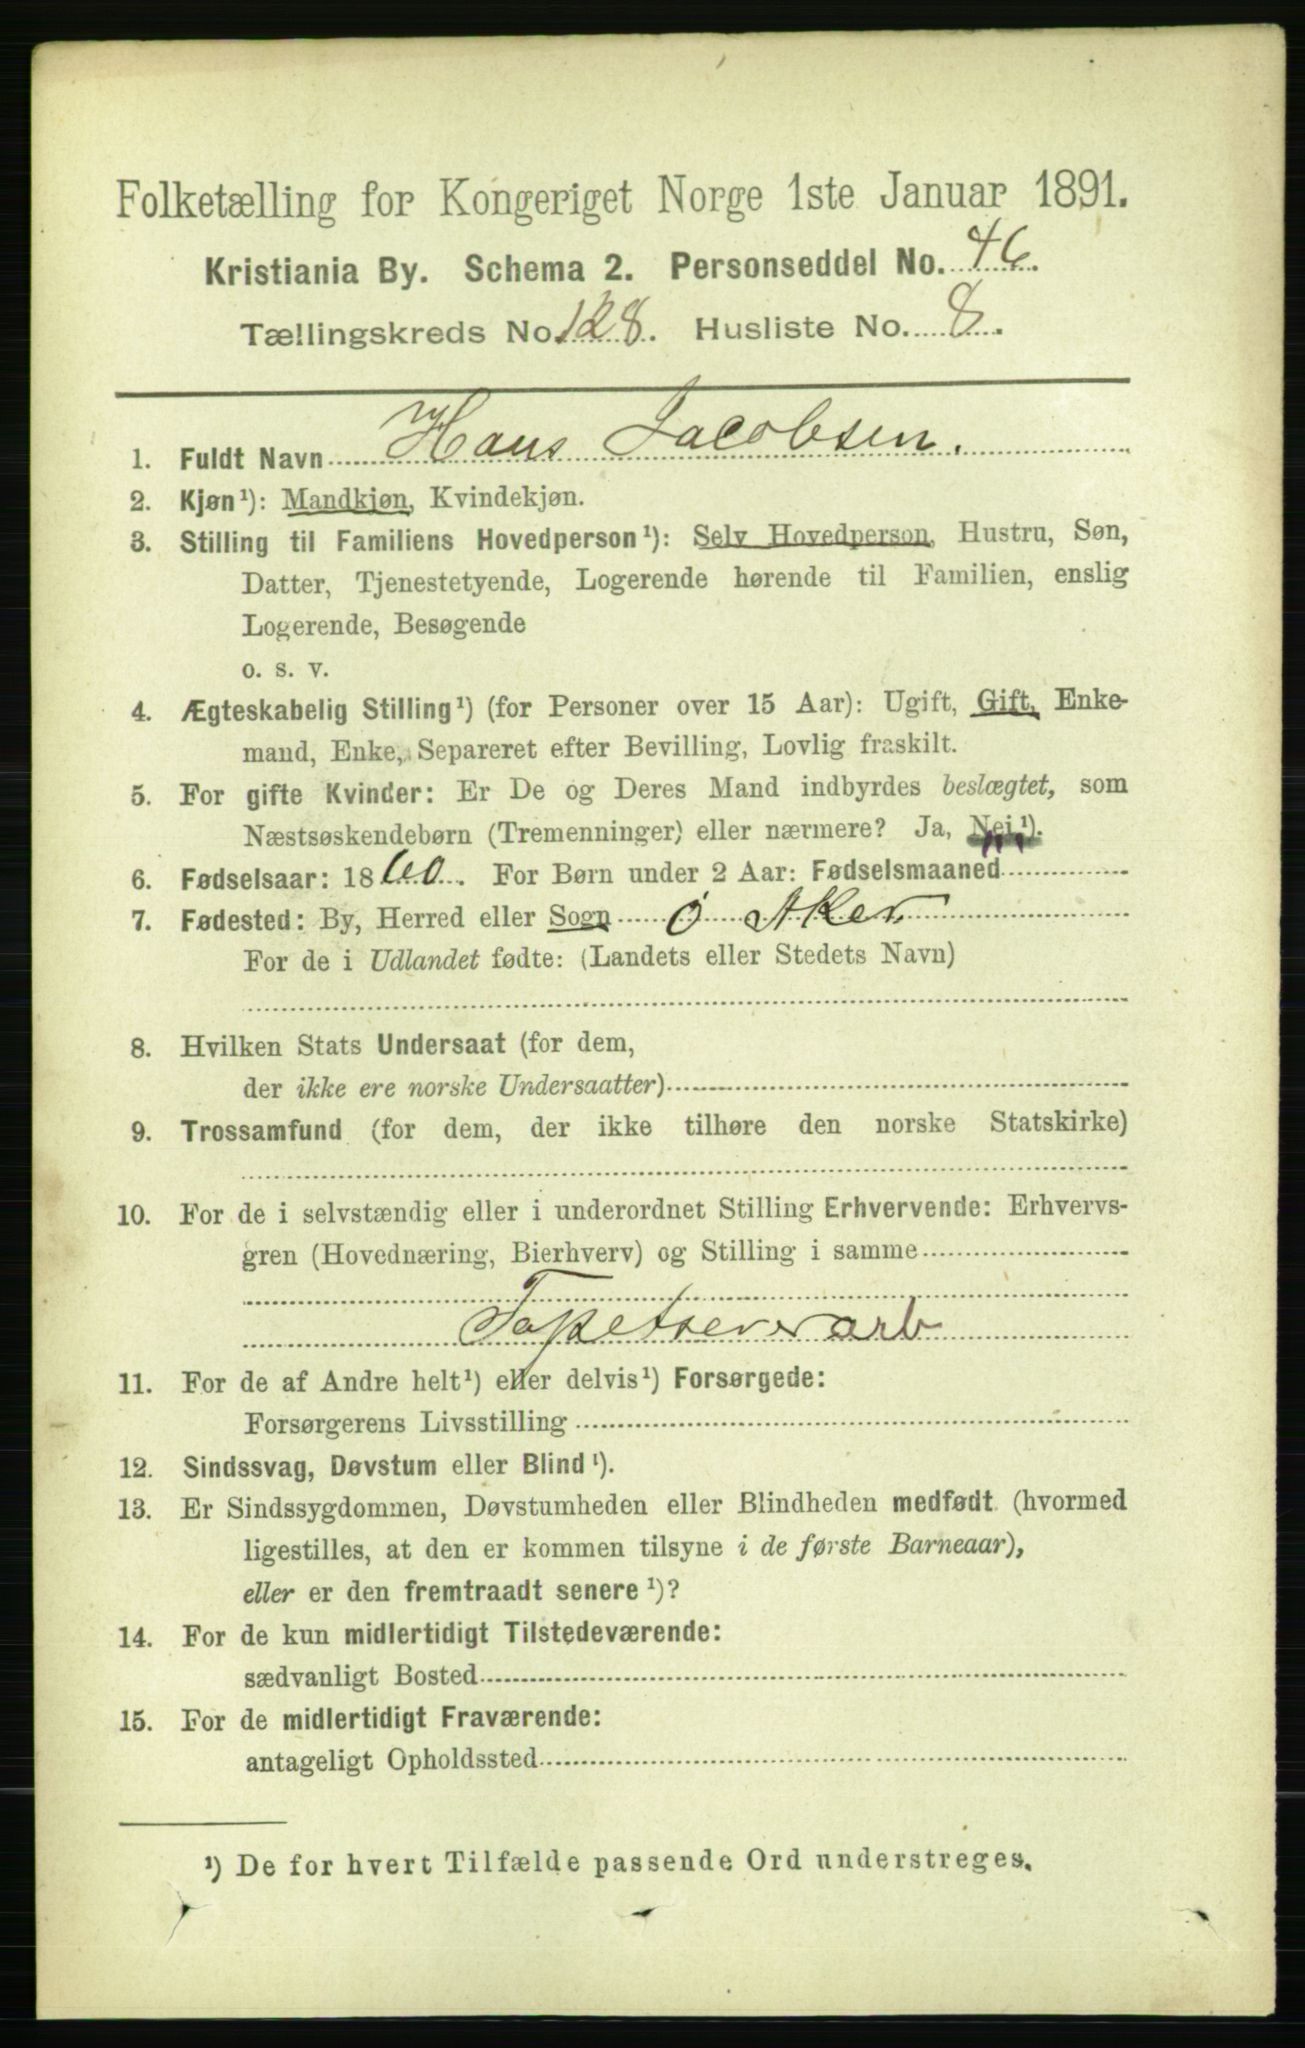 Folketælling for Kongeriget Norge 1ste Januar 1891.
Kristiania By. Schema 2. Personseddel No. 46.
Tællingskreds No. 128. Husliste No. 8.
1. Fuldt Navn Hans Jacobsen.
2. Kjøn¹): Mandkjøn, Kvindekjøn.
3. Stilling til Familiens Hovedperson¹): Selv Hovedperson, Hustru, Søn,
Datter, Tjenestetyende, Logerende hørende til Familien, enslig
Logerende, Besøgende
o. s. v.
4. Ægteskabelig Stilling¹) (for Personer over 15 Aar): Ugift, Gift, Enke-
mand, Enke, Separeret efter Bevilling, Lovlig fraskilt.
5. For gifte Kvinder: Er De og Deres Mand indbyrdes beslægtet, som
Næstsøskendebørn (Tremenninger) eller nærmere? Ja, Nei¹).
6. Fødselsaar: 1860. For Børn under 2 Aar: Fødselsmaaned
7. Fødested: By, Herred eller Sogn Ø Aker
For de i Udlandet fødte: (Landets eller Stedets Navn)
8. Hvilken Stats Undersaat (for dem,
der ikke ere norske Undersaatter)
9. Trossamfund (for dem, der ikke tilhøre den norske Statskirke)
10. For de i selvstændig eller i underordnet Stilling Erhvervende: Erhvervs-
gren (Hovednæring, Bierhverv) og Stilling i samme
Tapetserer arb
11. For de af Andre helt¹) eller delvis¹) Forsørgede:
Forsørgerens Livsstilling
12. Sindssvag, Døvstum eller Blind¹).
13. Er Sindssygdommen, Døvstumheden eller Blindheden medfødt (hvormed
ligestilles, at den er kommen tilsyne i de første Barneaar),
eller er den fremtraadt senere¹)?
14. For de kun midlertidigt Tilstedeværende:
sædvanligt Bosted
15. For de midlertidigt Fraværende:
antageligt Opholdssted
¹) De for hvert Tilfælde passende Ord understreges.